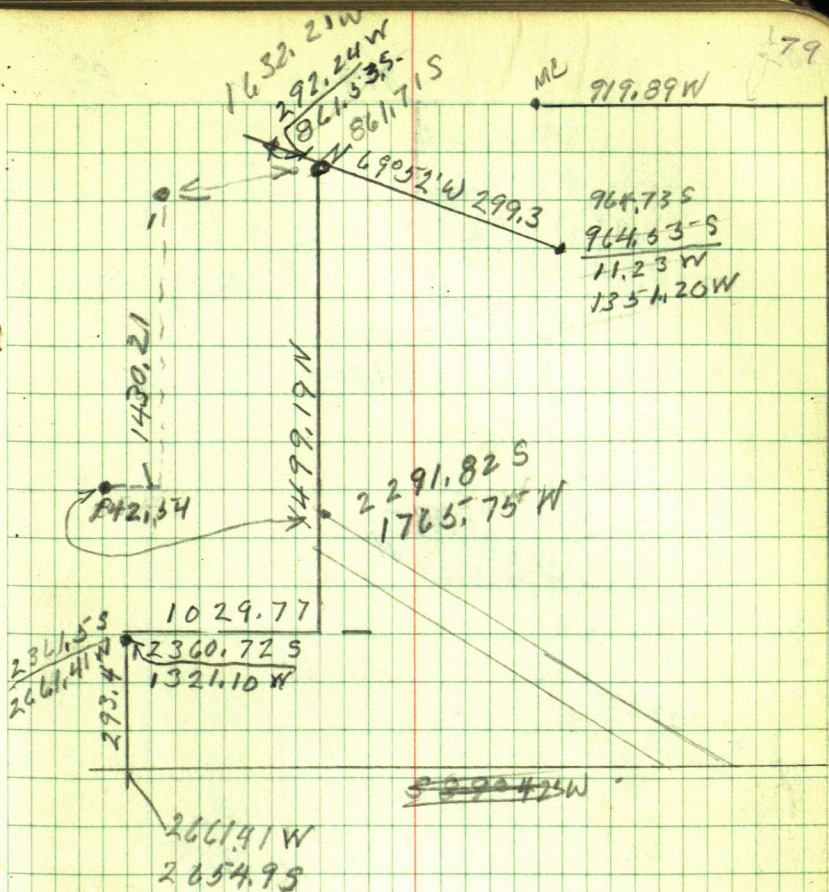 79
1632.21 W
292.24 W
861.53 S
861.71 S
ML
919.89 W
N 69°52' W 299.3
964.73 S
964.53 S
11.23 W
1351.20 W
1
1430.21
1499.19 N
2291.82 S
1765.75 W
1029.77
2360.72 S
1321.10 W
2361.5 S
2661.41 W
293.4
2661.41 W
2654.9 S